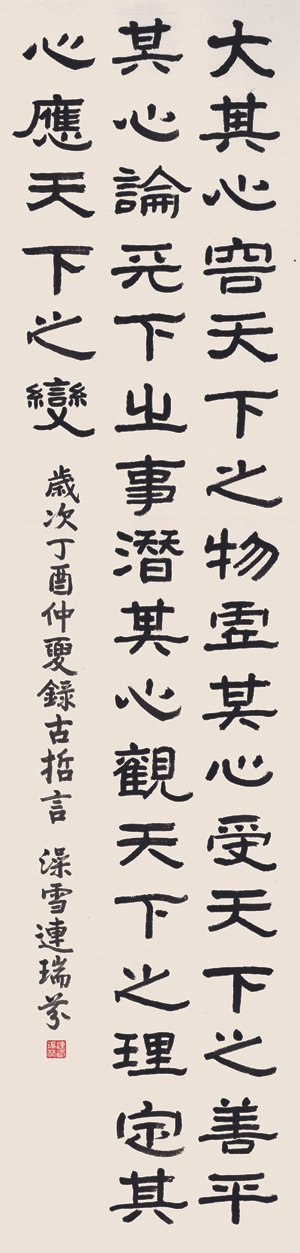 大其心容天下之物虛其心受天下之善平
其心論天下之事潛其心觀天下之理定其
心應天下之變
歲次丁酉仲夏錄古哲言 澡雪連瑞芬